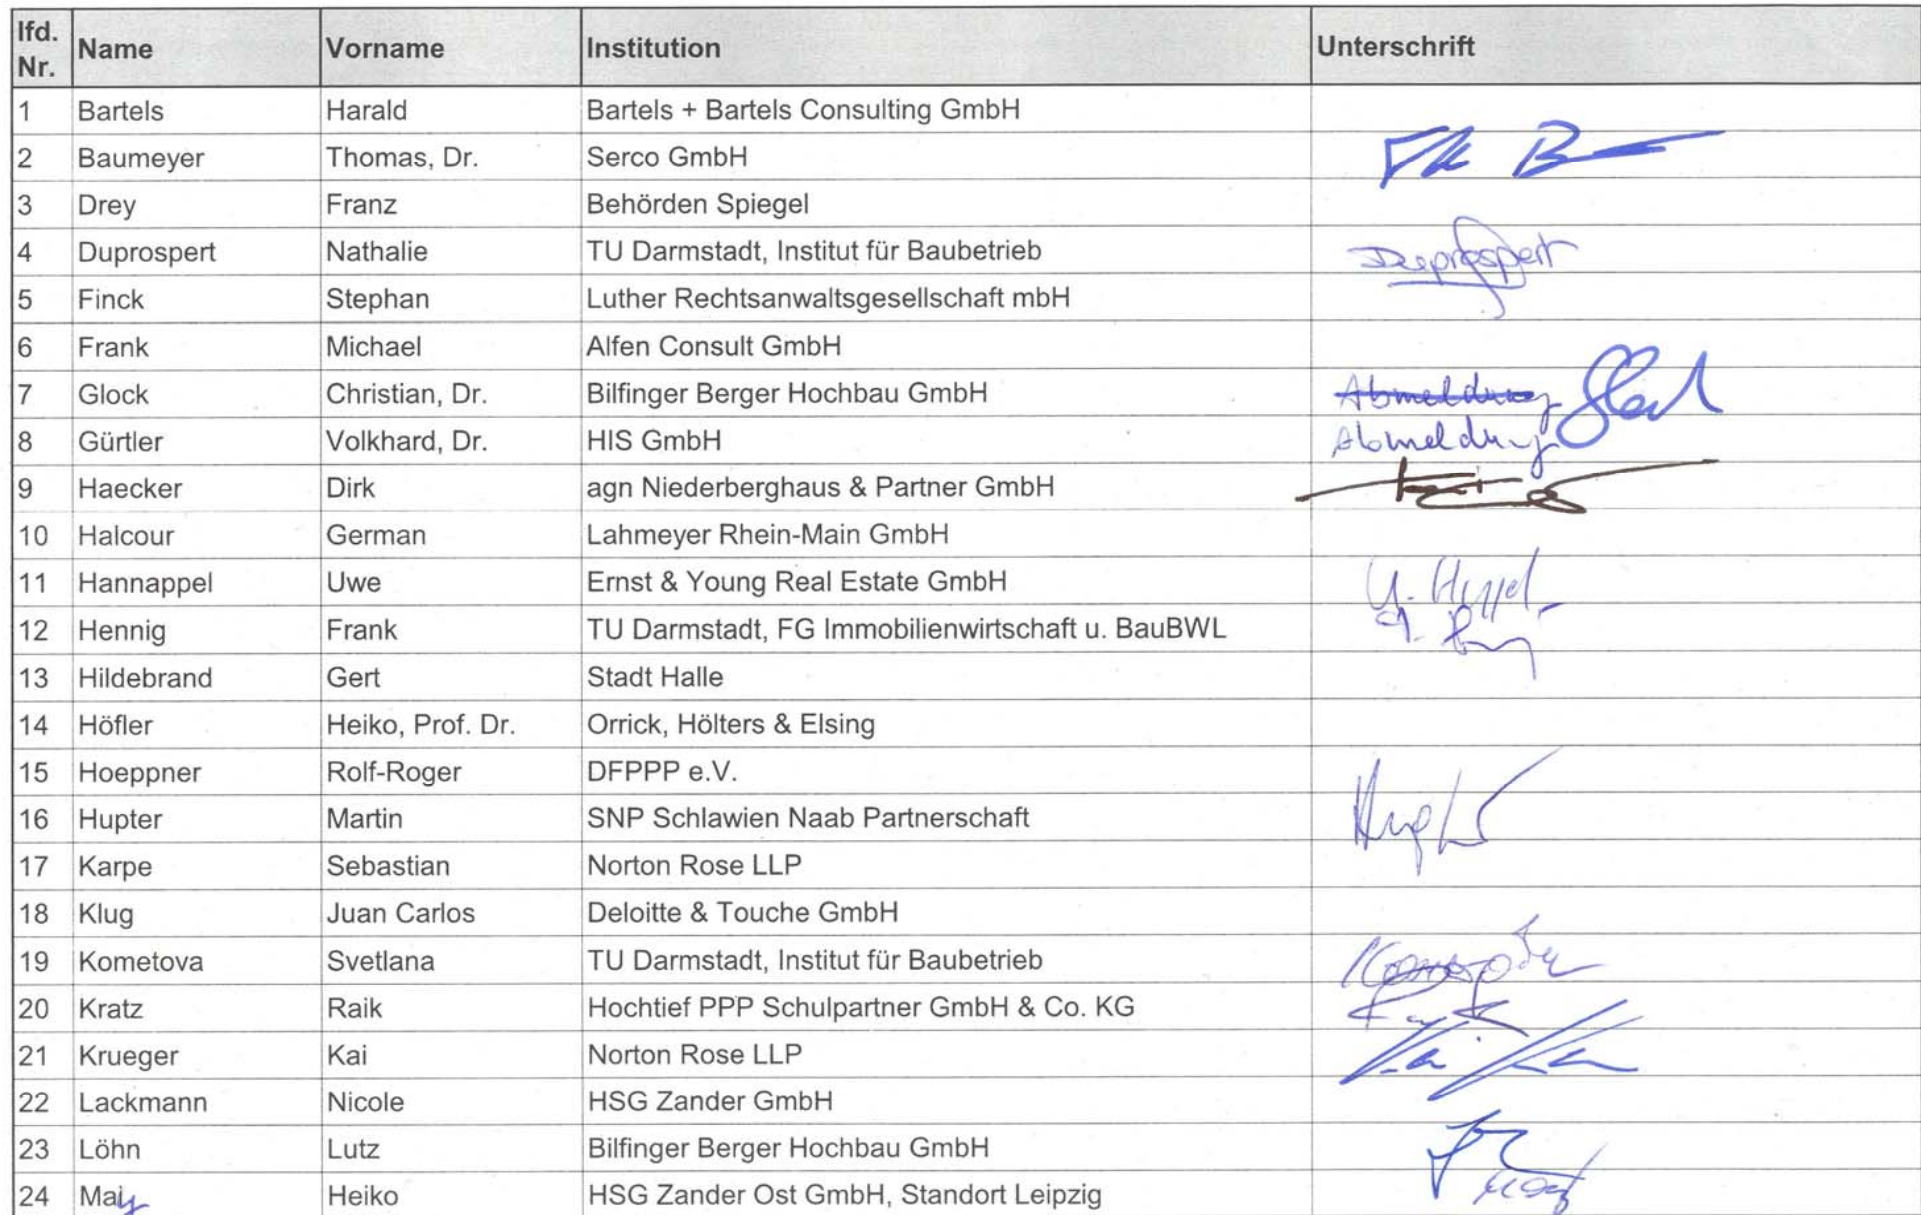 lfd. Nr. Name Vorname Institution Unterschrift
1 Bartels Harald Bartels + Bartels Consulting GmbH
2 Baumeyer Thomas, Dr. Serco GmbH
3 Drey Franz Behörden Spiegel
4 Duprospert Nathalie TU Darmstadt, Institut für Baubetrieb Duprospert
5 Finck Stephan Luther Rechtsanwaltsgesellschaft mbH
6 Frank Michael Alfen Consult GmbH
7 Glock Christian, Dr. Bilfinger Berger Hochbau GmbH Abmeldung
8 Gürtler Volkhard, Dr. HIS GmbH Abmeldung
9 Haecker Dirk agn Niederberghaus & Partner GmbH
10 Halcour German Lahmeyer Rhein-Main GmbH
11 Hannappel Uwe Ernst & Young Real Estate GmbH
12 Hennig Frank TU Darmstadt, FG Immobilienwirtschaft u. BauBWL
13 Hildebrand Gert Stadt Halle
14 Höfler Heiko, Prof. Dr. Orrick, Hölters & Elsing
15 Hoeppner Rolf-Roger DFPPP e.V.
16 Hupter Martin SNP Schlawien Naab Partnerschaft
17 Karpe Sebastian Norton Rose LLP
18 Klug Juan Carlos Deloitte & Touche GmbH
19 Kometova Svetlana TU Darmstadt, Institut für Baubetrieb
20 Kratz Raik Hochtief PPP Schulpartner GmbH & Co. KG
21 Krueger Kai Norton Rose LLP
22 Lackmann Nicole HSG Zander GmbH
23 Löhn Lutz Bilfinger Berger Hochbau GmbH
24 May Heiko HSG Zander Ost GmbH, Standort Leipzig